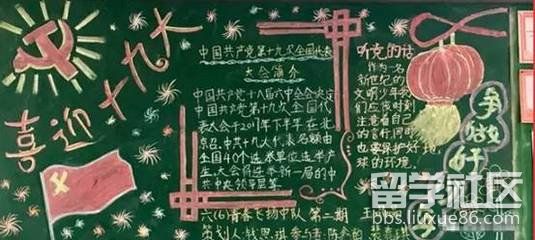 喜迎十九大
中国共产党第十九次全国代表
大会简介
中国共产党十八届六中全会决定
中国共产党第十九次全国代
表大会于2017年下半年在北
京召。中共十九大代表名额由
全国40个选举单位选举产
生。大会将选举新一届的中
共中央领导层等
六(6)青春飞扬中队 第二期
听党的话
作为一名
新世纪的
文明少年
们应时刻
注意自己
的言行同时
也要保护好地
球的环境。
争做好
留学社区
bbs.liuxue86.com